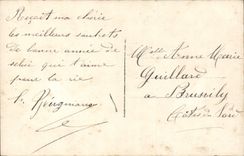 Reçoit ma chérie
les meilleurs souhaits
de bonne année de
celui qui t'aime
pour la vie
Mlle Anne Marie
Guillard
a
Côtes du Nord